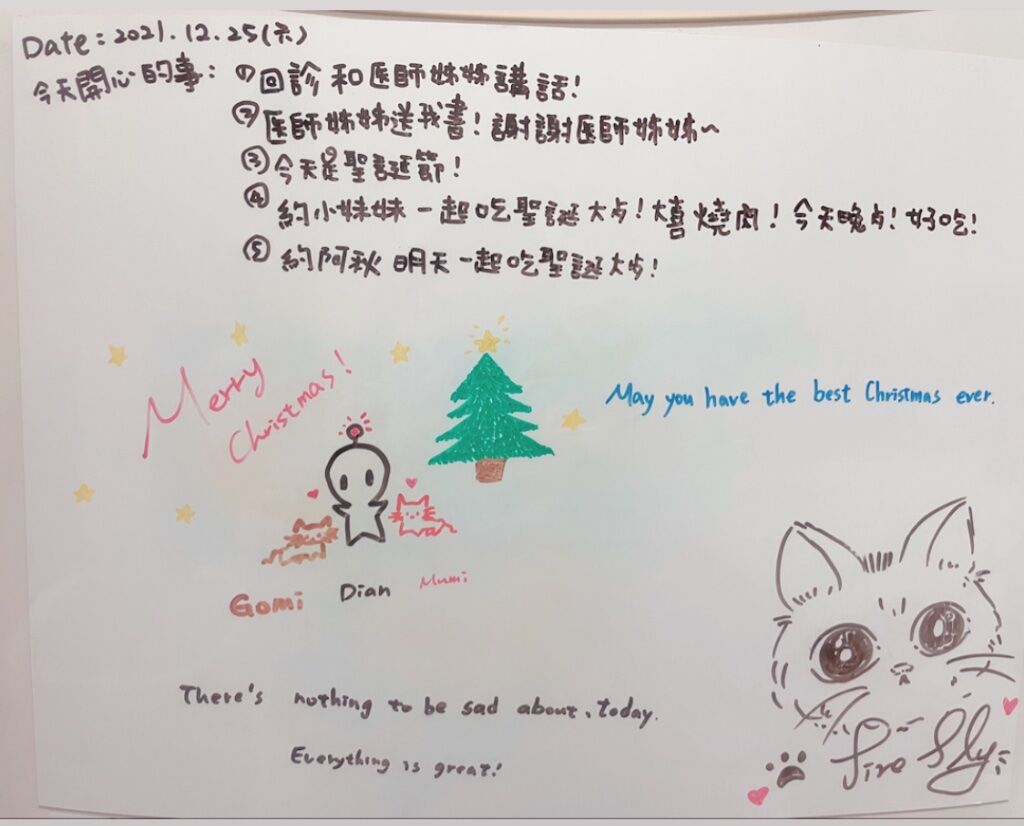 Date: 2021.12.25(六)
今天開心的事: ①回診和医師姊姊講話!
②医師姊姊送我書!謝謝医師姊姊~
③今天是聖誕節!
④約小妹妹一起吃聖誕大歺!嘻燒肉!今天晚歺!好吃!
⑤約阿秋明天一起吃聖誕大歺!
Merry
Christmas!
May you have the best Christmas ever.
Gomi Dian Mumi
There's nothing to be sad about, today.
Everything is great!
Fire Fly